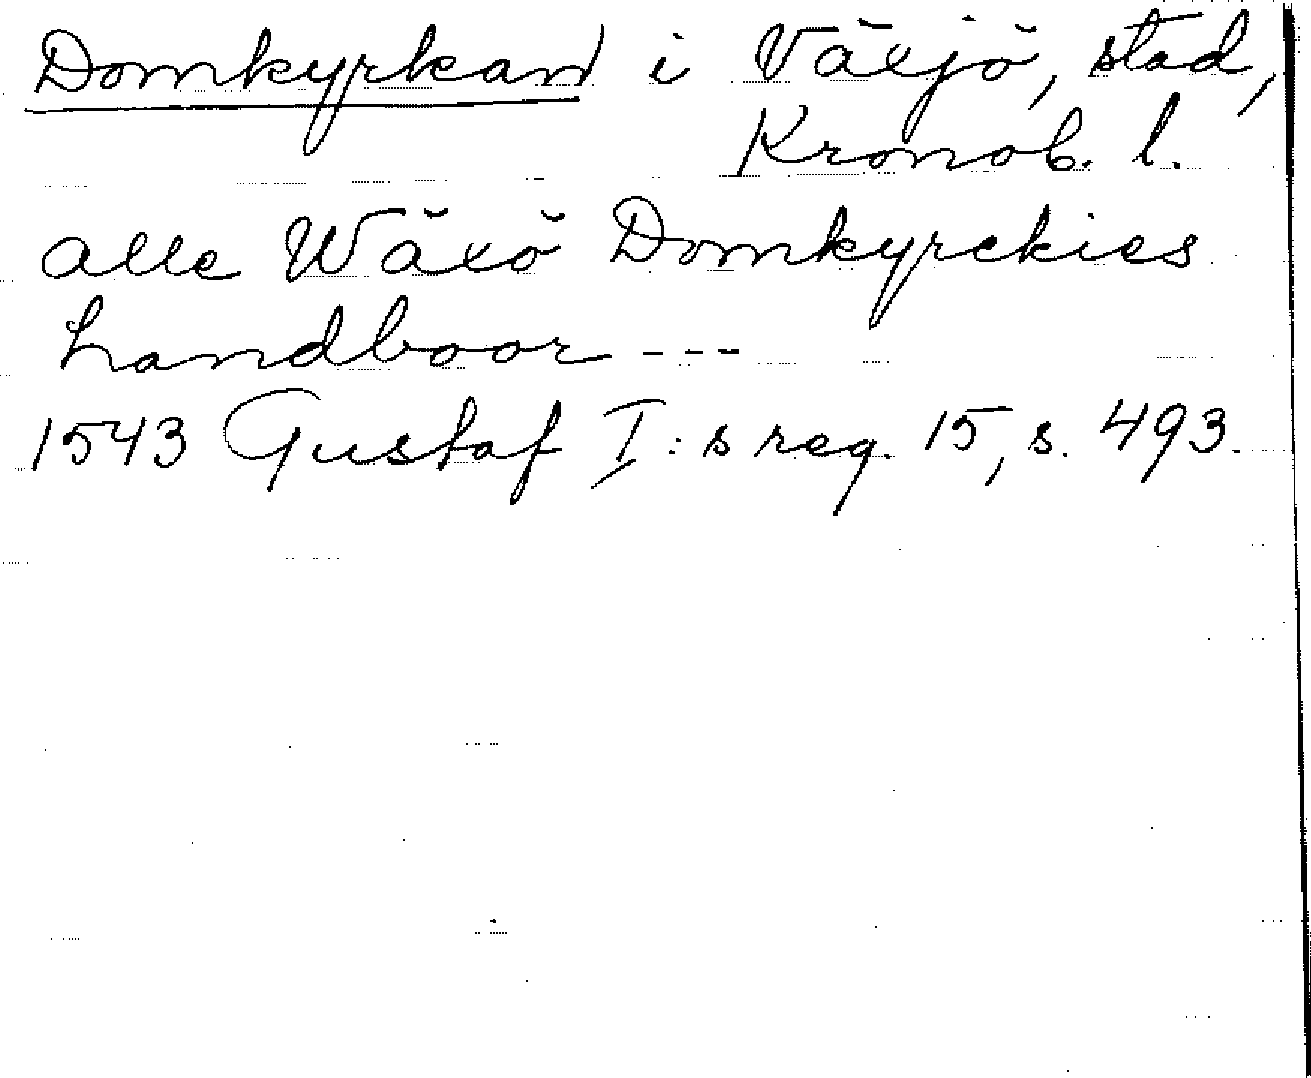 Domkyrkan i Växjö, stad,
Kronob. l.
alle Wäxö Domkyrckies
handboor ---
1543 Gustaf I:s reg. 15, s. 493.